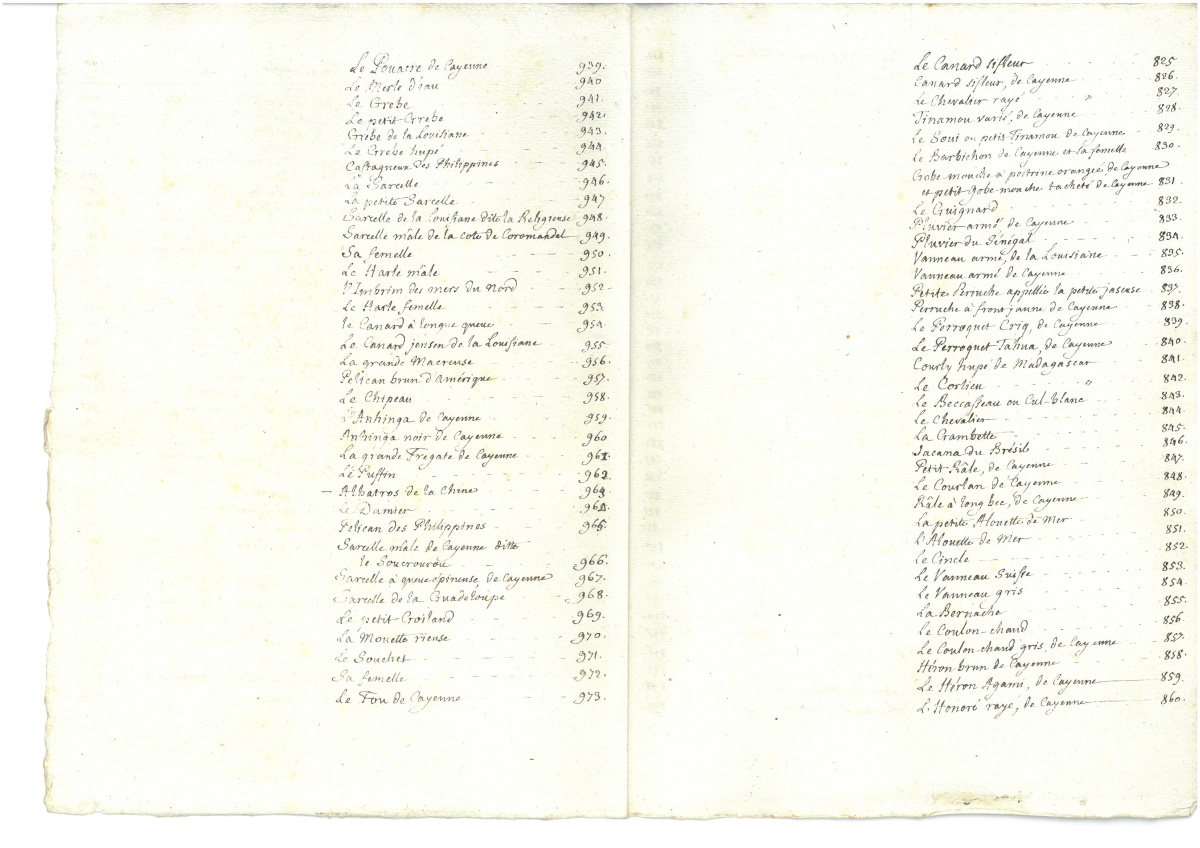 Le Pouacre de Cayenne 939.
Le Merle d'eau 940
Le Grebe 941.
Le petit Grebe 942.
Grebe de la Louisiane 943.
Le Grebe hupé 944.
Castagneux des Philippines 945.
La Sarcelle 946.
La petite Sarcelle 947
Sarcelle de la Louisiane dite la Religieuse 948.
Sarcelle mâle de la cote de Coromandel 949.
Sa femelle 950.
Le Harle mâle 951.
l'Imbrim des mers du Nord 952
Le Harle femelle 953.
le Canard à longue queue 954
Le Canard jensen de la Louisiane 955
La grande Macreuse 956.
Pelican brun d'amérique 957.
Le Chipeau 958.
L'Anhinga de Cayenne 959.
Anhinga noir de Cayenne 960
La grande Fregate de Cayenne 961
Le Puffin 962.
– Albatros de la Chine 963
Le Damier 964
Pelican des Philippines 965.
Sarcelle mâle de Cayenne ditte
le Soucrourou 966.
Sarcelle à queue épineuse, de Cayenne 967.
Sarcelle de la Guadeloupe 968.
Le petit Goiland 969.
La Mouette rieuse 970.
Le Souchet 971.
Sa femelle 972.
Le Fou de Cayenne 973.
Le Canard sifleur 825
Canard sifleur, de Cayenne 826.
Le Chevalier rayé " 827.
Tinamou varié, de Cayenne 828.
Le Soui ou petit Tinamou de Cayenne 829.
Le Barbichon de Cayenne et sa femelle 830.
Gobe-mouche à poitrine orangée de Cayenne
et petit gobe-mouche tacheté de Cayenne 831.
Le Guignard 832.
Pluvier armé de Cayenne 833.
Pluvier du Sénégal 834.
Vanneau armé, de la Louisiane 835.
Vanneau armé de Cayenne 836.
Petite Perruche appellée la petite jaseuse 837.
Perruche à front jaune de Cayenne 838.
Le Perroquet Criq, de Cayenne 839.
Le Perroquet Tahua, de Cayenne 840.
Courly hupé de Madagascar 841.
Le Corlieu " 842.
Le Beccasseau ou Cul-blanc 843.
Le Chevalier 844.
La Crambette 845.
Jacana du Brésil 846.
Petit Râle, de Cayenne 847.
Le Courlan de Cayenne 848.
Râle à long bec, de Cayenne 849.
La petite Alouette de Mer 850.
l'Alouette de Mer 851.
Le Cincle 852.
Le Vanneau Suisse 853.
Le Vanneau gris 854.
La Bernache 855.
Le Coulon-chaud 856.
Le Coulon-chaud gris, de Cayenne 857.
Héron brun de Cayenne 858.
Le Héron Agami, de Cayenne 859.
L'Honoré rayé, de Cayenne 860.